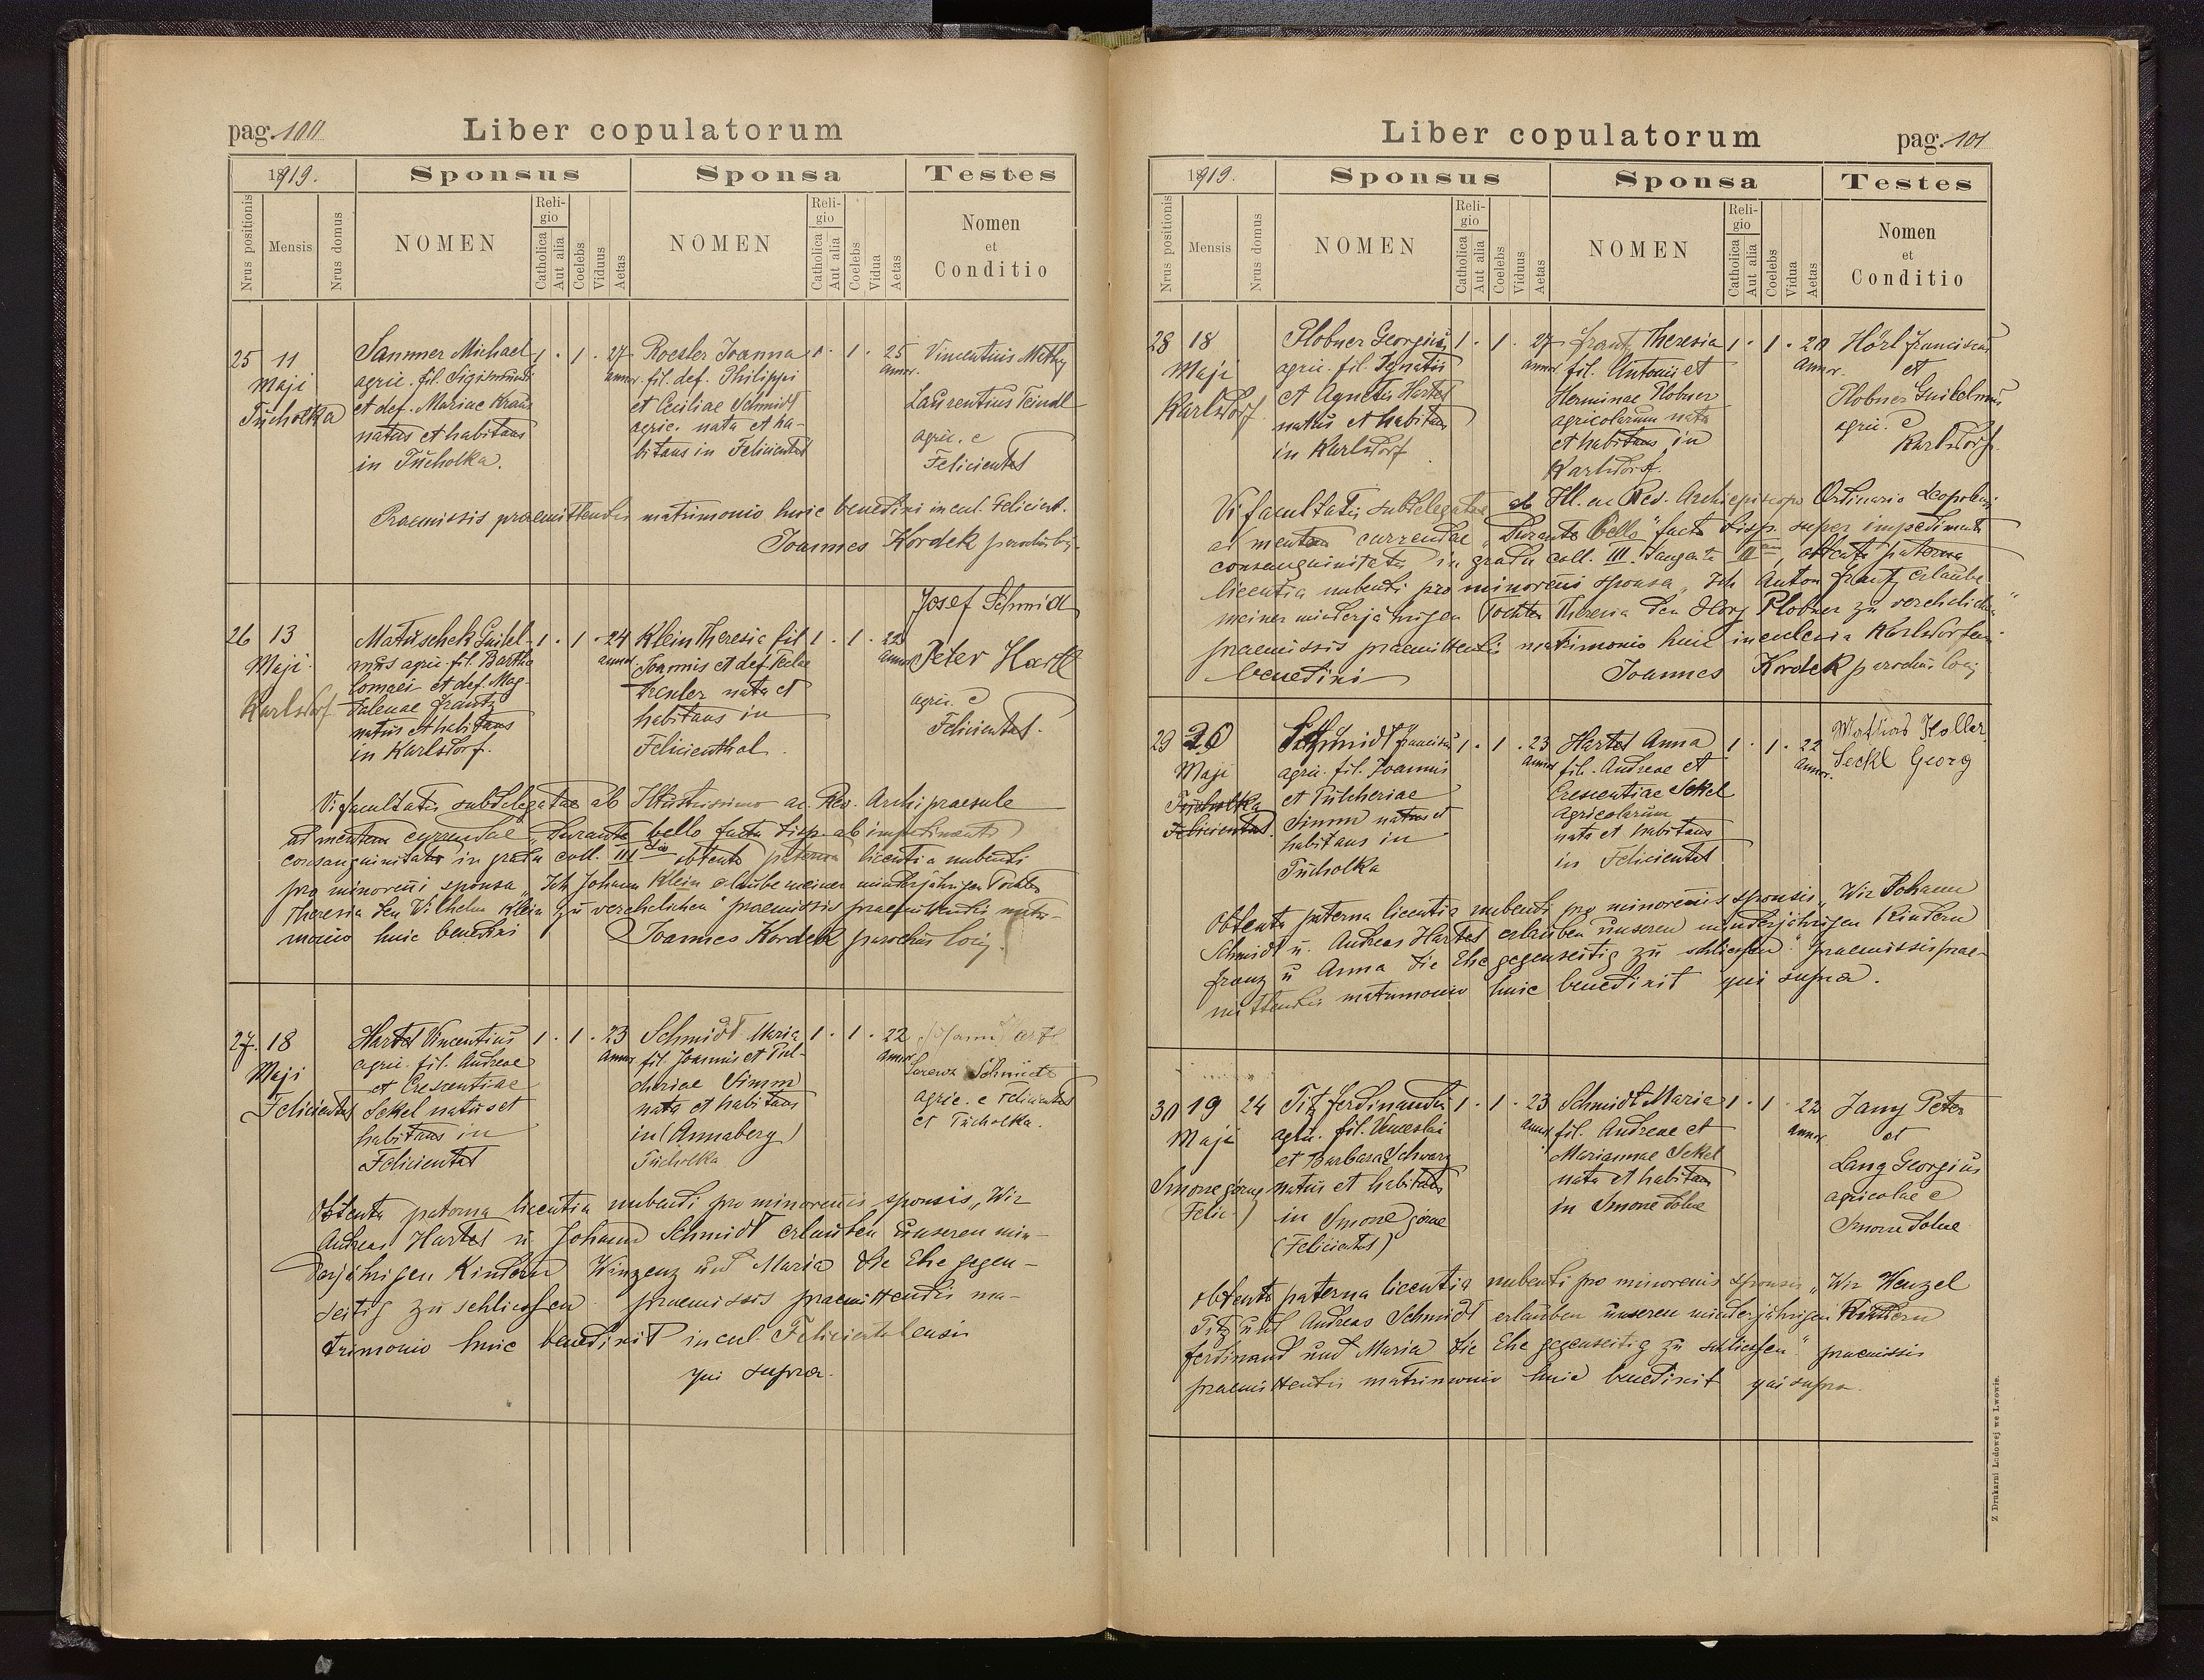 pag. 100 Liber copulatorum
1919. Sponsus Sponsa Testes
Nrus positionis Mensis Nrus domus NOMEN Religio Catholica Aut alia Coelebs Viduus Aetas NOMEN Religio Catholica Aut alia Coelebs Vidua Aetas Nomen et Conditio
25 11 Maji Tucholka
Sammer Michael
agric. fil. Sigismundi
et def. Mariae Kraus
natus et habitans
in Tucholka.
1 · 1 · 27 annor.
Roesler Joanna
fil. def. Philippi
et Ceciliae Schmidt
agric. nata et ha-
bitans in Felicientat
1 · 1 · 25 annor.
Vincentius Mathy
Laurentius Teindl
agric. e
Felicientat
Praemissis praemittendis matrimonio huic benedixi in eccl. Felicient.
Joannes Kordek parochus loci.
26 13 Maji Karlsdorf
Matuschek Guilel-
mus agric. fil. Bartho
lomaei et def. Mag-
dalenae Frantz
natus et habitans
in Karlsdorf.
1 · 1 · 24 annor
Klein Theresia fil
Joannis et def. Teclae
nata et
habitans in
Felicienthal.
1 · 1 · 22 annor
Josef Schmid
Peter Hartl
agric. e
Felicientat.
Vi facultatis subdelegatae ab Illustrissimo ac Rev. Archipraesule
ad mentem currendae "Durante bello facta disp. ab impedimento
consanguinitatis in gradu coll. III obtenta paterna licentia nubendi
pro minorenni sponsa "Ich Johann Klein erlaube meiner minderjährigen Tochter
Theresia den Vilhelm Klein zu verehelichen" praemissis praemittendis matri-
monio huic benedixi Joannes Kordek parochus loci.
27. 18 Maji Felicientat
Hartel Vincentius
agric. fil. Andreae
et Crescentiae
Sekel natus et
habitans in
Felicientat
1 · 1 · 23 annor
Schmidt Maria
fil. Joannis et Pul-
cheriae Simm
nata et habitans
in (Annaberg)
Tucholka
1 · 1 · 22 annor
Schmidt
agric. e Felicientat
et Tucholka.
Obtenta paterna licentia nubendi pro minorennis sponsis "Wir
Andreas Hartel u. Johann Schmidt erlauben unseren min-
derjährigen Kindern Winzenz und Maria die Ehe gegen-
seitig zu schliessen praemissis praemittendis ma-
trimonio huic benedixit in eccl. Felicientalensi
qui supra.
Liber copulatorum pag. 101
1919. Sponsus Sponsa Testes
Nrus positionis Mensis Nrus domus NOMEN Religio Catholica Aut alia Coelebs Viduus Aetas NOMEN Religio Catholica Aut alia Coelebs Vidua Aetas Nomen et Conditio
28 18 Maji Karlsdorf
Plobner Georgius
agric. fil. Ignatii
et Agnetis Hartel
natus et habitans
in Karlsdorf
1 · 1 · 27 annor
Frantz Theresia
fil. Antonii et
Herminae Plobner
agricolarum nata
et habitans in
Karlsdorf.
1 · 1 · 20 annor.
Hörl Franciscus
et
Plobner Guilelmus
agric. e
Karlsdorf
Vi facultatis subdelegatae ab Ill. ac Rev. Archiepiscopo Ordinario Leopoliensi
ad mentem currendae "Durante bello" facta disp. super impedimento
consanguinitatis in gradu coll. III tangente II obtenta paterna
licentia nubendi pro minorenni sponsa "Ich Anton Frantz erlaube
meiner minderjährigen Tochter Theresia den Georg Plobner zu verehelichen"
praemissis praemittendis matrimonio huic in ecclesia Karlsdorfensi
benedixi Joannes Kordek parochus loci
29 20 Maji Tucholka Felicientat.
Schmidt Franciscus
agric. fil. Joannis
et Pulcheriae
Simm natus et
habitans in
Tucholka
1 · 1 · 23 annor
Hartel Anna
fil. Andreae et
Crescentiae Sekel
agricolarum
nata et habitans
in Felicientat
1 · 1 · 22 annor.
Mathias Koller
Seckl Georg
Obtenta paterna licentia nubendi pro minorennis sponsis "Wir Johann
Schmidt u. Andreas Hartel erlauben unseren minderjährigen Kindern
Franz u Anna die Ehe gegenseitig zu schliessen." praemissis prae-
mittendis matrimonio huic benedixit qui supra.
30 19 24 Maji Smorze górne Felic.
Titz Ferdinandus
agric. fil. Venceslai
et Barbarae Schwarz
natus et habitans
in Smorze górne
(Felicientat)
1 · 1 · 23 annor
Schmidt Maria
fil. Andreae et
Mariannae Sekel
nata et habitans
in Smorze dolne
1 · 1 · 22 annor.
Jany Peter
et
Lang Georgius
agricolae e
Smorze dolne
Obtenta paterna licentia nubendi pro minorennis sponsis "Wir Wenzel
Titz und Andreas Schmidt erlauben unseren minderjährigen Kindern
Ferdinand und Maria die Ehe gegenseitig zu schliessen." praemissis
praemittendis matrimonio huic benedixit qui supra.
Z Drukarni Ludowej we Lwowie.